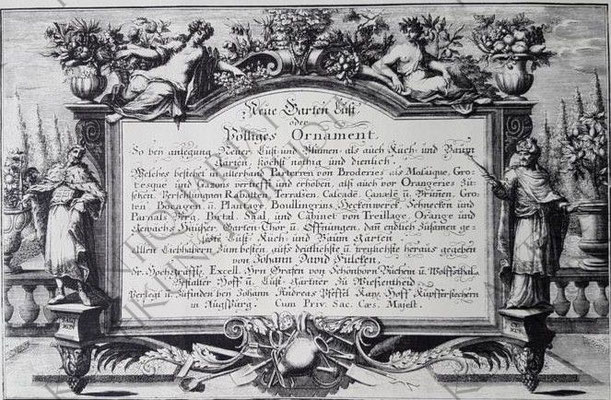 Neüe Garten Lust
oder
Völliges Ornament.
So bey anlegung Neuer Lust und Blumen- als auch Kuch- und Baum
Garten, höchst nöthig und dienlich.
Welches bestehet in allerhand Parterren von Broderies als Mosaique, Gro-
tesque und Gazons vertiefft und erhoben, als auch vor Orangeries zu
sehen. Verzeichnungen Rabatten, Terrassen, Cascade, Canæle u. Brunnen, Gro-
ten, Bocagen u. Plantage, Boullingrins, Heckenwerck, Schnecken und
Parnass Berg, Portal, Shal, und Cabinet von Treillage, Orange und
Gewächs Haüser, Garten Thor u. Öffnungen, dan endlich Zusamen ge-
setzte Lust- Kuch- und Baum Garten
Allen Liebhabern zum besten auffs deütlichste u. treulichste heraus gegeben
von Johann David Fülcken.
Sr. Hochgräffl. Excell. Hrn. Grafen von Schönborn Bucheim u. Wolffsthal
Bestalter Hoff u. Lust-Gartner zu Wiesentheid
Verlegt u. Zufinden bey Johann Andreas Pfeffel Kay. Hoff Kupferstechern
in Augspurg. Cum Priv. Sac. Cæs. Majest.